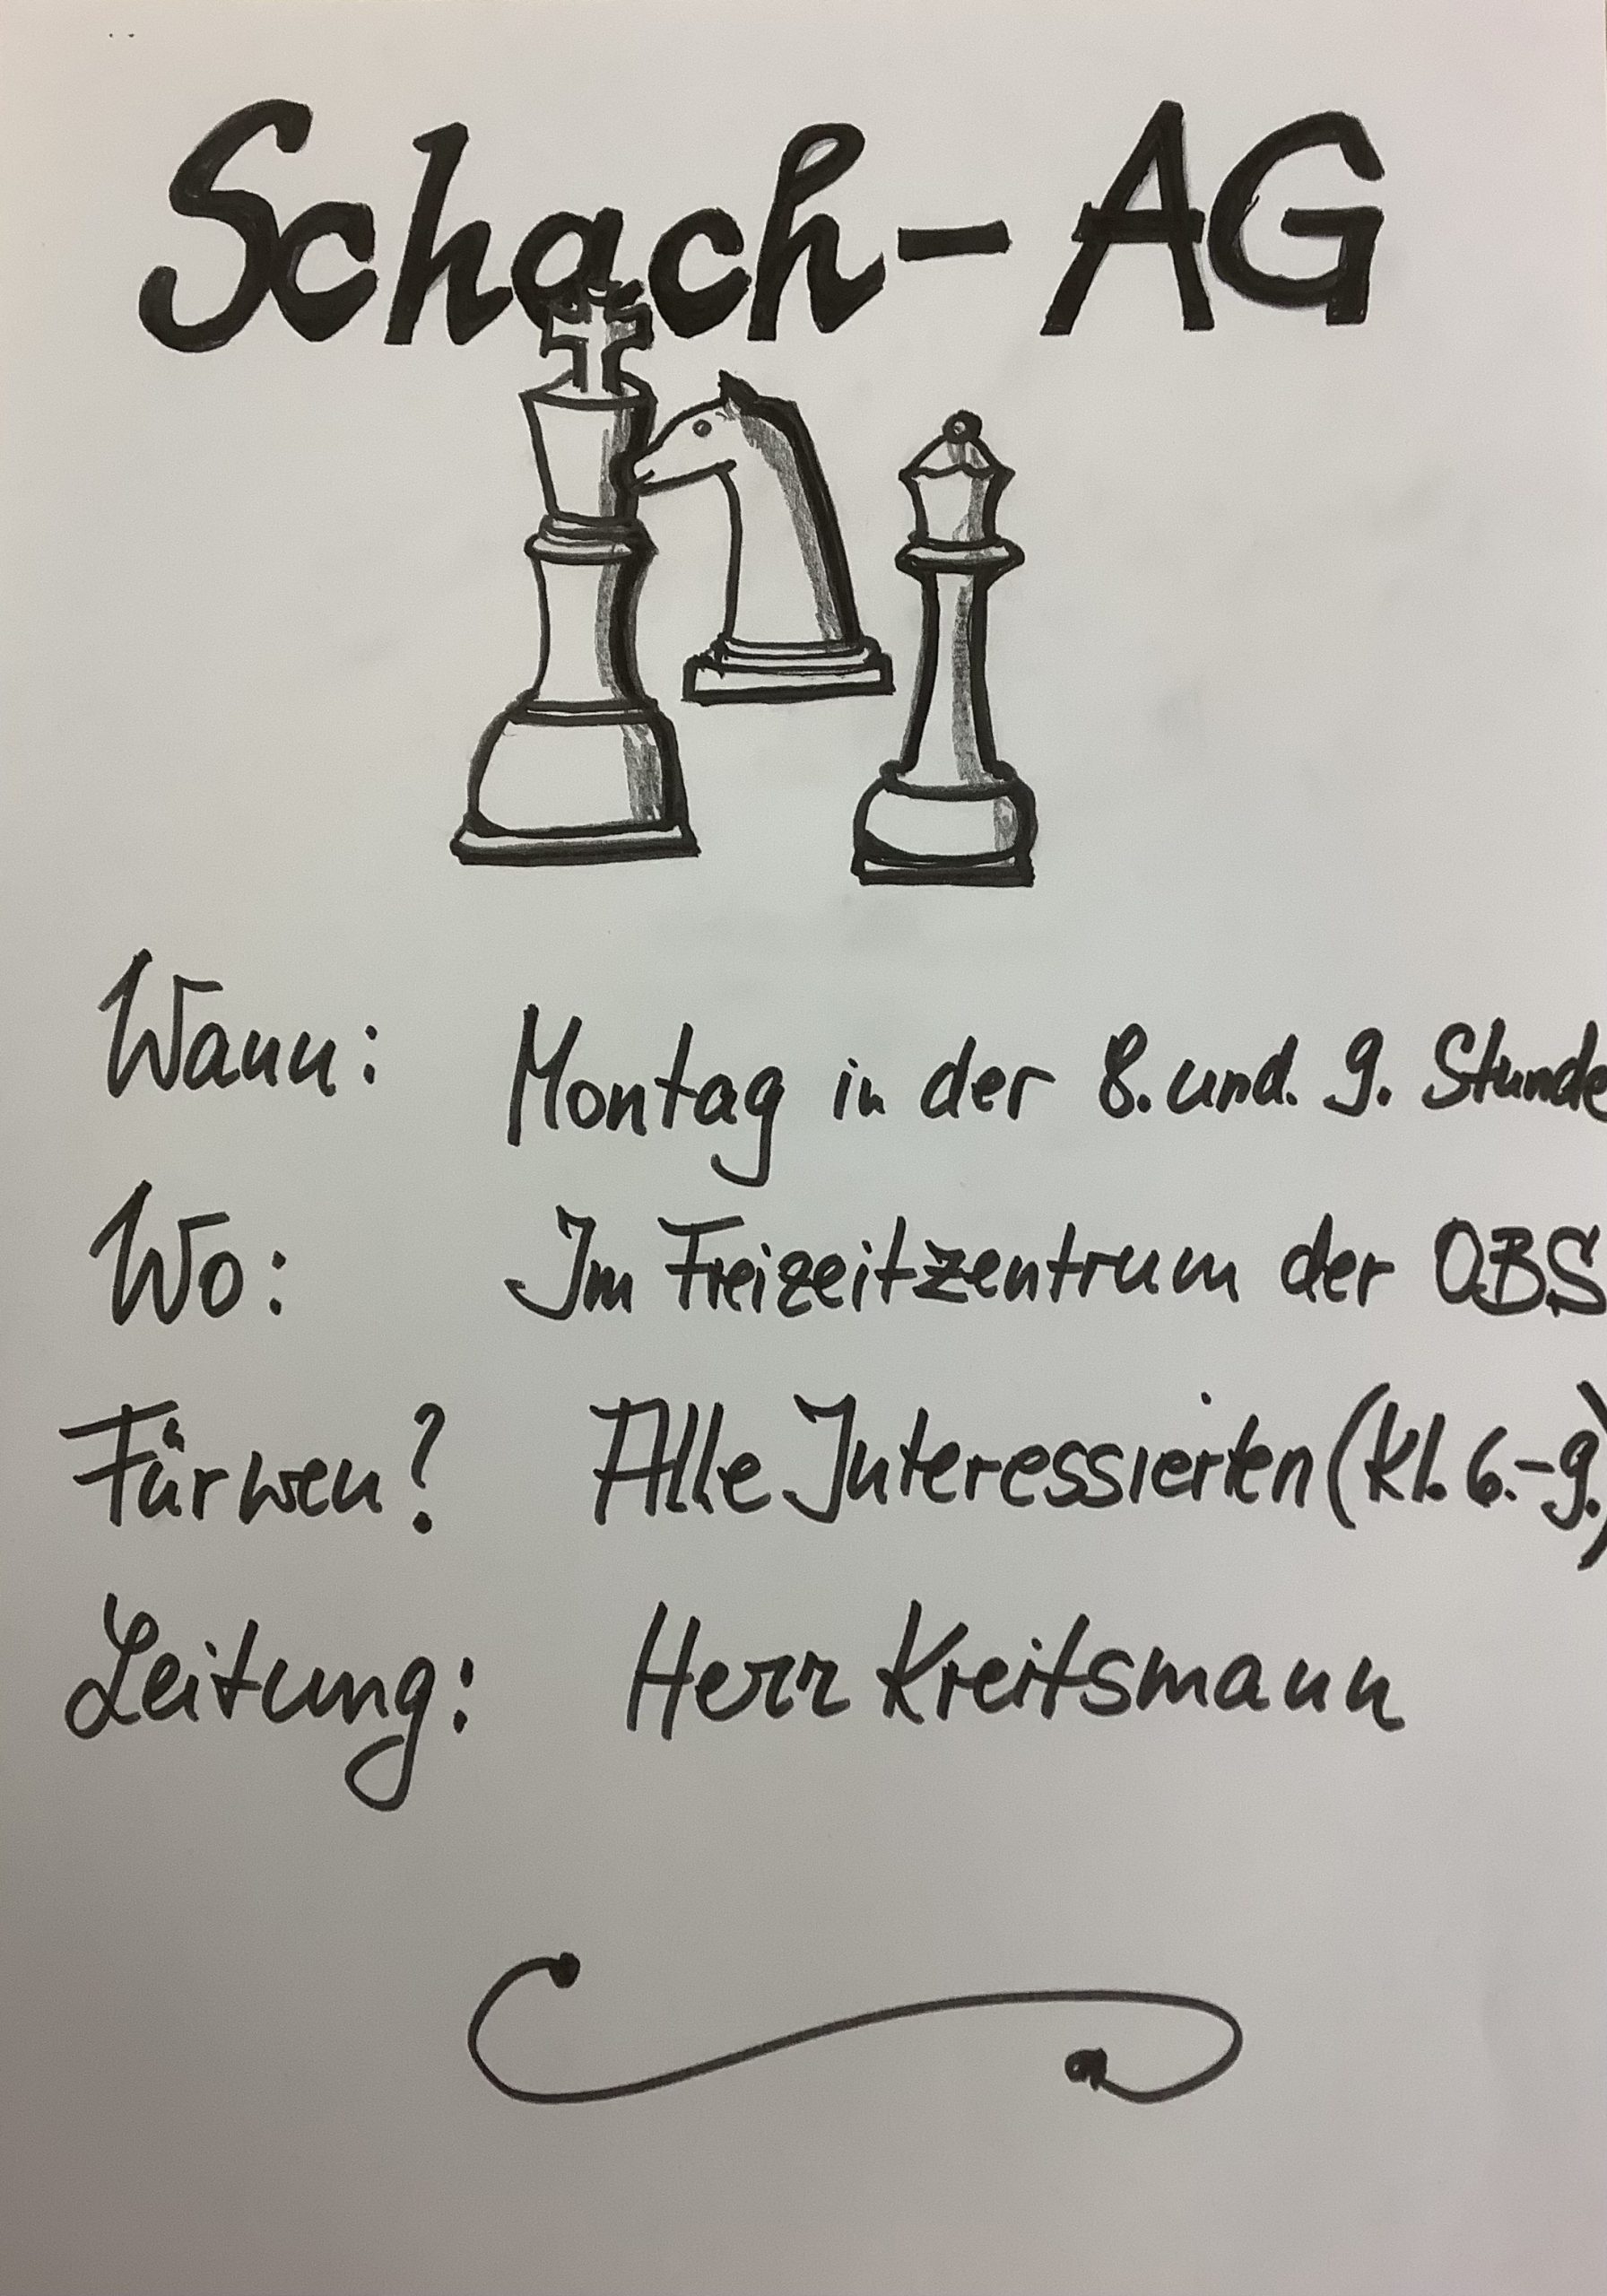 Schach-AG
Wann: Montag in der 8. und. 9. Stunde
Wo: Im Freizeitzentrum der OBS
Für wen? Alle Interessierten (Kl. 6.-9.)
Leitung: Herr Kreitsmann